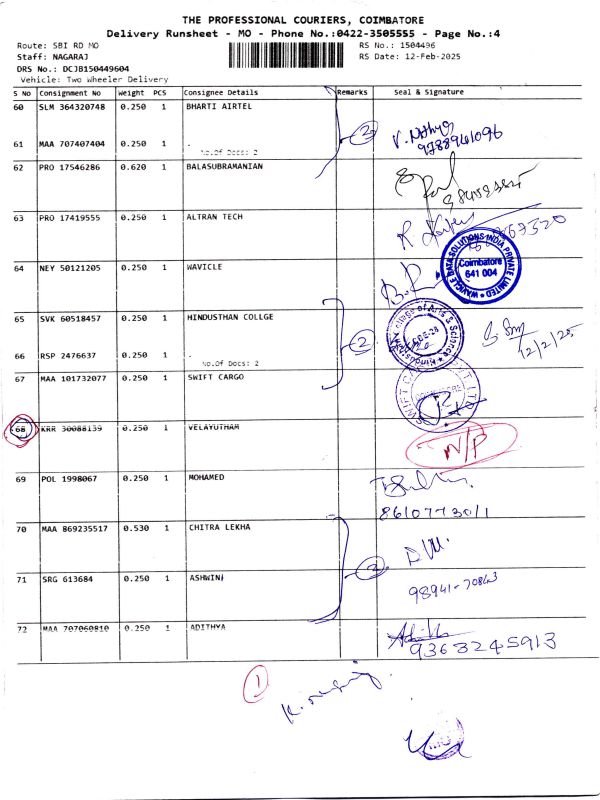 THE PROFESSIONAL COURIERS, COIMBATORE
Delivery Runsheet - MO - Phone No.:0422-3505555 - Page No.:4
Route: SBI RD MO
RS No.: 1504496
Staff: NAGARAJ
RS Date: 12-Feb-2025
DRS No.: DCJB150449604
Vehicle: Two Wheeler Delivery
S No Consignment No Weight PCS Consignee Details Remarks Seal & Signature
60 SLM 364320748 0.250 1 BHARTI AIRTEL
2
61 MAA 707407404 0.250 1 -
No.Of Docs: 2
62 PRO 17546286 0.620 1 BALASUBRAMANIAN
63 PRO 17419555 0.250 1 ALTRAN TECH
64 NEY 50121205 0.250 1 WAVICLE
WAVICLE DATA SOLUTIONS INDIA PRIVATE LIMITED
Coimbatore
641 004
65 SVK 60518457 0.250 1 HINDUSTHAN COLLGE
2
12/2/25
66 RSP 2476637 0.250 1 -
No.Of Docs: 2
67 MAA 101732077 0.250 1 SWIFT CARGO
68 KRR 30088139 0.250 1 VELAYUTHAM
N/P
69 POL 1998067 0.250 1 MOHAMED
8610773011
70 MAA 869235517 0.530 1 CHITRA LEKHA
71 SRG 613684 0.250 1 ASHWINI
98941-70843
72 MAA 707060810 0.250 1 ADITHYA
9363245913
1